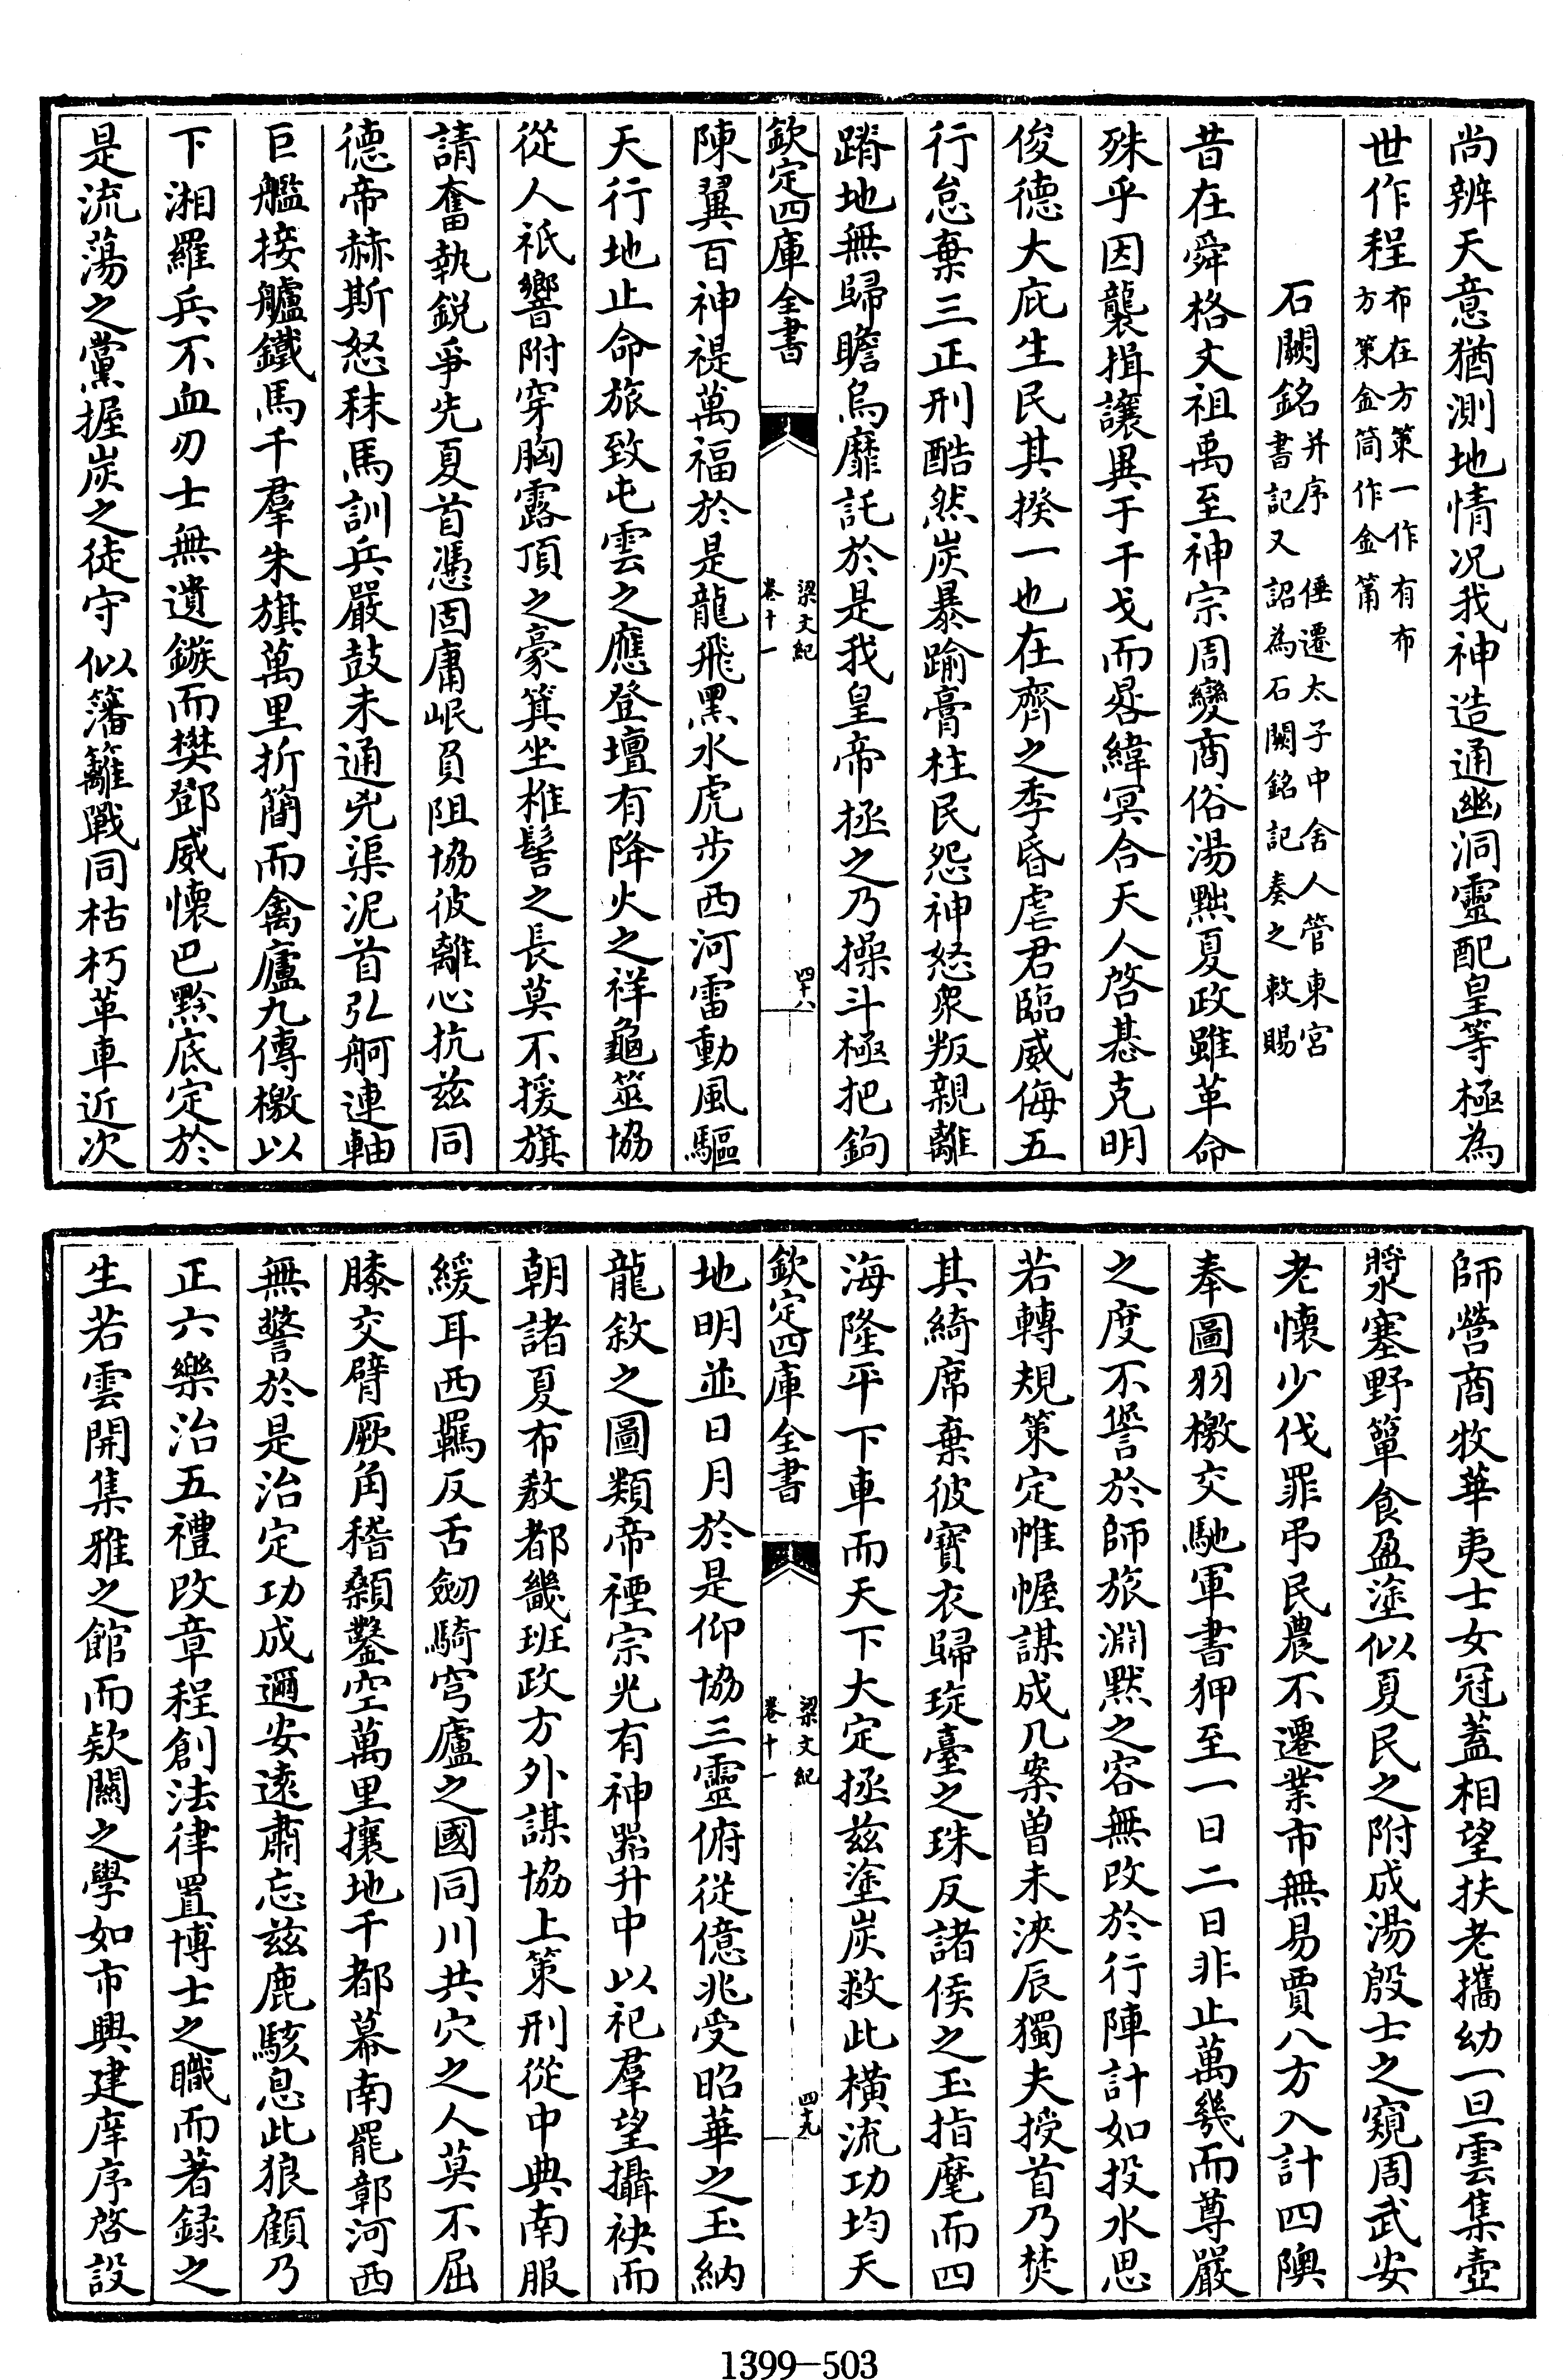 尚辨天意猶測地情况我神造通幽洞靈配皇等極為
世作程布在方策一作有布方策金筒作金箾
石闕銘并序 倕遷太子中舍人管東宫書記又詔為石闕銘記奏之敕賜
昔在舜格文祖禹至神宗周變商俗湯黜夏政雖革命
殊乎因襲揖讓異于干戈而晷緯冥合天人啓惎克明
俊德大庇生民其揆一也在齊之季昏虐君臨威侮五
行怠棄三正刑酷然炭暴踰膏柱民怨神怒衆叛親離
蹐地無歸瞻烏靡託於是我皇帝拯之乃操斗極把鉤
欽定四庫全書 梁文紀 卷十一 四十八
陳翼百神禔萬福於是龍飛黑水虎步西河雷動風驅
天行地止命旅致屯雲之應登壇有降火之祥龜筮協
從人祗響附穿胸露頂之豪箕坐椎髻之長莫不援旗
請奮執鋭爭先夏首憑固庸岷負阻協彼離心抗兹同
德帝赫斯怒秣馬訓兵嚴鼓未通兇渠泥首弘舸連軸
巨艦接艫鐵馬千羣朱旗萬里折簡而禽廬九傳檄以
下湘羅兵不血刃士無遺鏃而樊鄧威懷巴黔底定於
是流蕩之黨握炭之徒守似籓籬戰同枯朽革車近次
師營商牧華夷士女冠蓋相望扶老攜幼一旦雲集壺
漿塞野簞食盈塗似夏民之附成湯殷士之窺周武安
老懷少伐罪弔民農不遷業市無易賈八方入計四隩
奉圖羽檄交馳軍書狎至一日二日非止萬幾而尊嚴
之度不諐於師旅淵默之容無改於行陣計如投水思
若轉規策定帷幄謀成几案曽未浹辰獨夫授首乃焚
其綺席棄彼寳衣歸琁臺之珠反諸侯之玉指麾而四
海隆平下車而天下大定拯兹塗炭救此横流功均天
欽定四庫全書 梁文紀 卷十一 四十九
地明並日月於是仰協三靈俯從億兆受昭華之玉納
龍敘之圖類帝禋宗光有神器升中以祀羣望攝袂而
朝諸夏布敎都畿班政方外謀協上策刑從中典南服
緩耳西羈反舌劒騎穹廬之國同川共穴之人莫不屈
膝交臂厥角稽顙鑿空萬里攘地千都幕南罷鄣河西
無警於是治定功成邇安逺肅忘兹鹿駭息此狼顧乃
正六樂治五禮改章程創法律置博士之職而著録之
生若雲開集雅之館而欵闗之學如市興建庠序啓設
1399—503